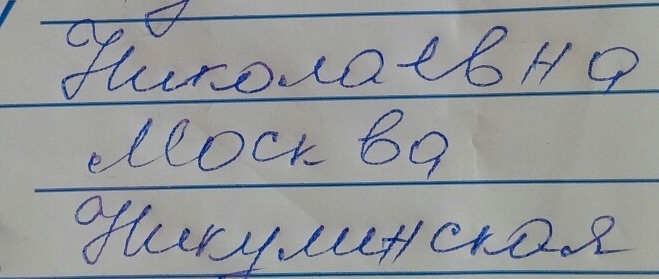 Николаевна
Москва
Никулинская